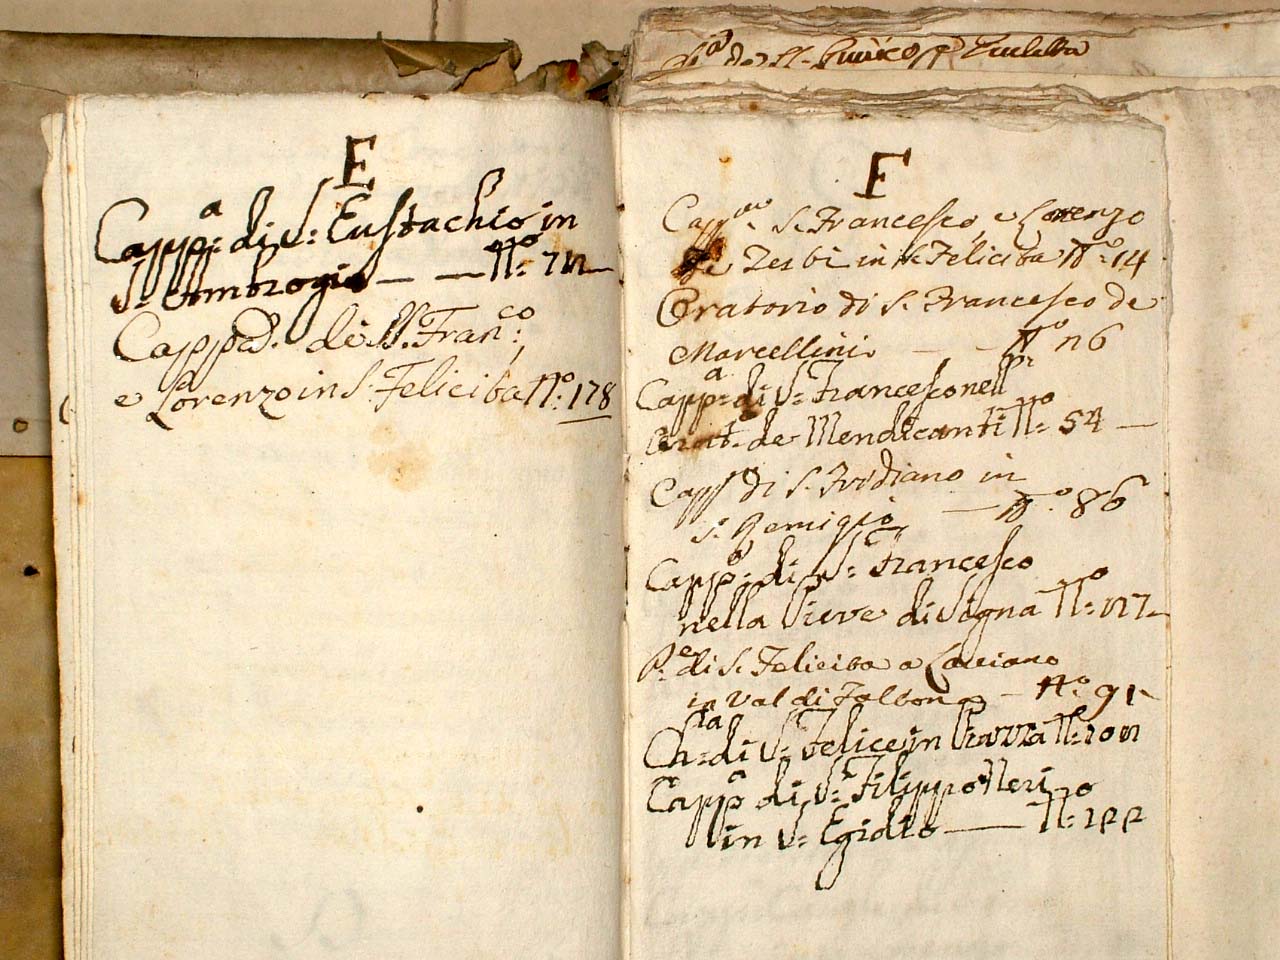 E
Capp.a di S: Eustachio in
S: Ambrogio — — N.o: 72
Capp.a di S. Fran.co
e Lorenzo in S. Felicita N.o: 178
F
Capp.  S. Francesco, e Lorenzo
Zerbi in S. Felicita N.o: 14
Oratorio di S. Francesco de
Marcellini — — N.o 26
Capp.a di S: Francesco nell
Orat: de Mendicanti N.o: 54 —
Capp di S. Fridiano in
S. Remigio — N.o. 86
Capp.a: di S: Francesco
nella Pieve di Signa N.o: 127 —
P.e di S. Felicita a
in Val di — N.o: 91
Ch: di S: Felice in Piazza N.o: 102
Capp.a di S: Filippo Neri
in S: Egidio — N.o: